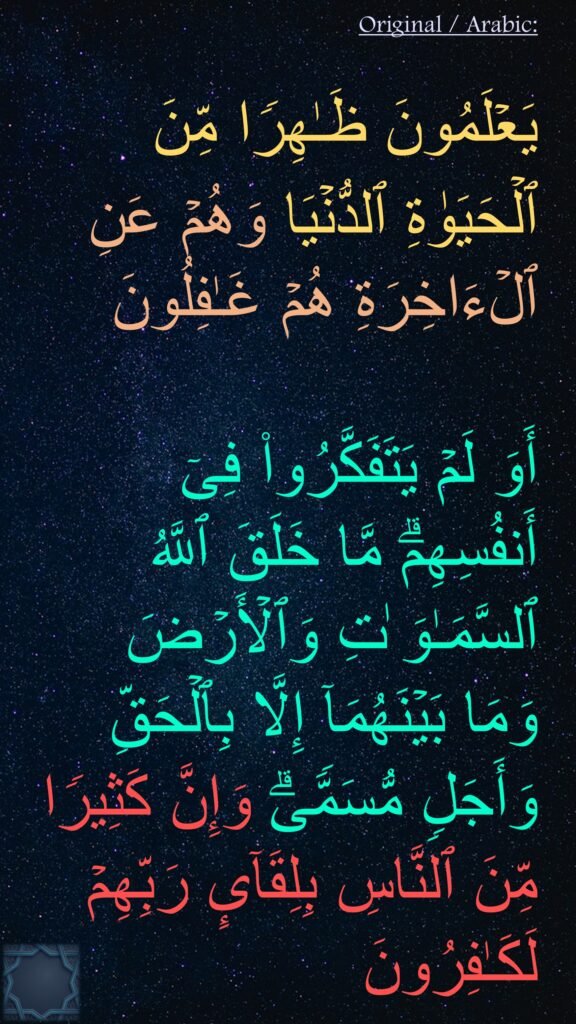 Original / Arabic:
يَعْلَمُونَ ظَـٰهِرًا مِّنَ
ٱلْحَيَوٰةِ ٱلدُّنْيَا وَهُمْ عَنِ
ٱلْءَاخِرَةِ هُمْ غَـٰفِلُونَ
أَوَ لَمْ يَتَفَكَّرُوا۟ فِىٓ
أَنفُسِهِمۗ مَّا خَلَقَ ٱللَّهُ
ٱلسَّمَـٰوَٰتِ وَٱلْأَرْضَ
وَمَا بَيْنَهُمَآ إِلَّا بِٱلْحَقِّ
وَأَجَلٍ مُّسَمًّىۗ وَإِنَّ كَثِيرًا
مِّنَ ٱلنَّاسِ بِلِقَآئِ رَبِّهِمْ
لَكَـٰفِرُونَ